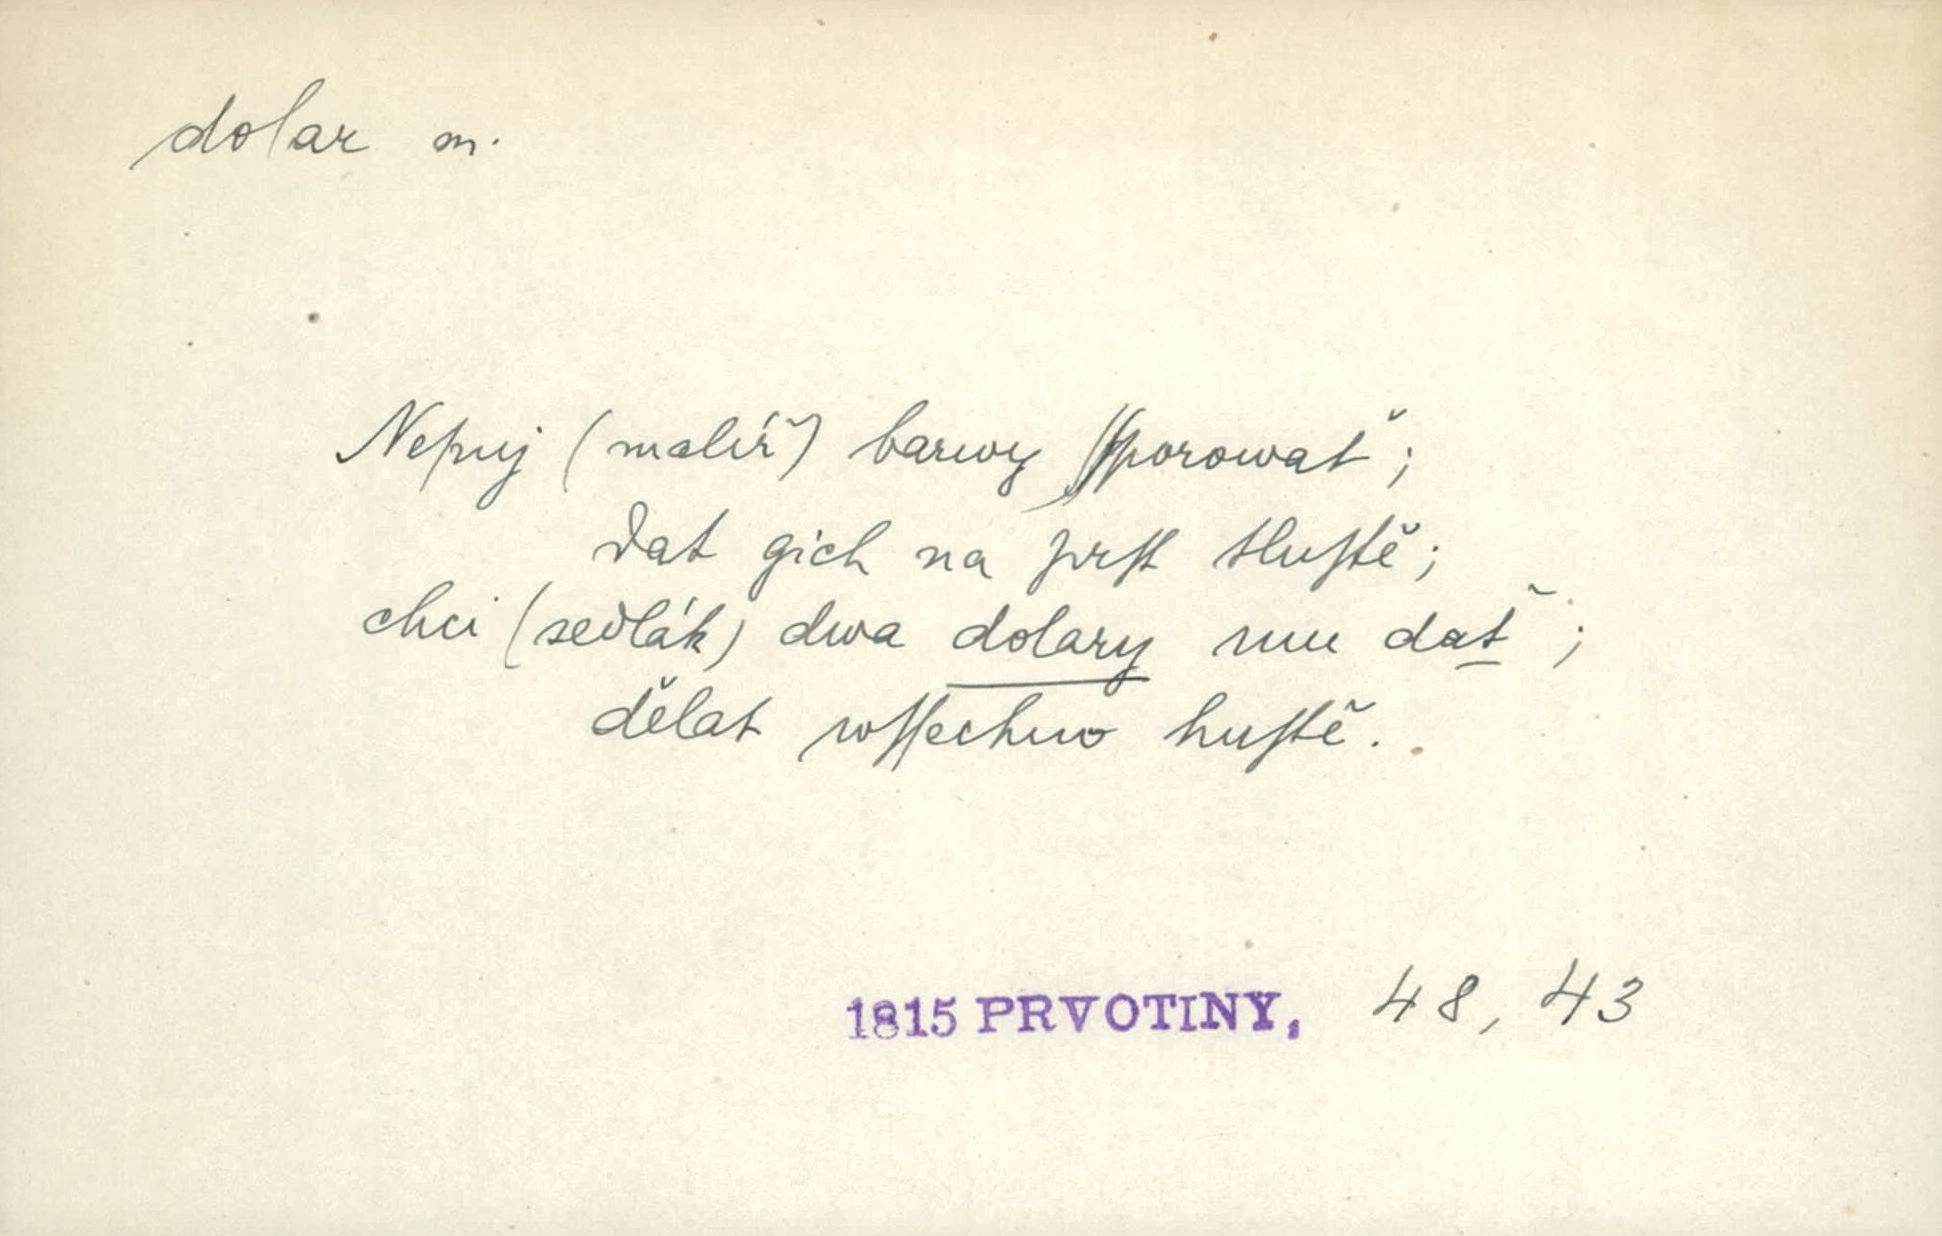 dolar m.
Nepuj (malíř) barwy ſſporowať;
dat gich na prſt tluſtě;
chci (sedlák) dwa dolary mu dať;
dělat wſſechno huſtě.
1815 PRVOTINY, 48, 43